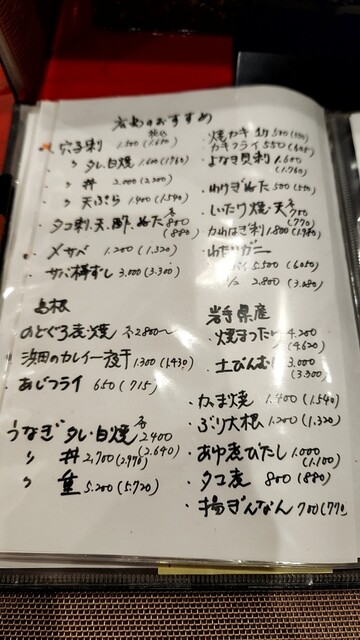 のおすすめ
税込
穴子刺 1.500 (1.650)
〃 タレ.白焼 1.600 (1760)
〃 丼 2.000 (2.200)
〃 天ぷら 1.400 (1.540)
タコ刺.天.酢.ぬた 各800 (880)
〆サバ 1.200 (1.320)
サバ棒ずし 3.000 (3.300)
島根
のどぐろ煮・焼 2.800〜
浜田のカレイ一夜干 1.300 (1430)
あじフライ 650 (715)
うなぎ タレ.白焼 各2.400 (2.640)
〃 丼 2,700 (2.970)
〃 重 5.200 (5.720)
焼カキ 500 (550)
カキフライ 550 (605)
よなき貝刺 1.600 (1.760)
わけぎぬた 500 (550)
いたり焼・天 各700 (770)
カワはぎ刺 1.800 (1.980)
わたりガニ
5.500 (6050)
1/2 2.800 (3.080)
岩手県産
焼まったけ 4.200 (4.620)
土びんむし 3.000 (3.300)
かま焼 1.400 (1.540)
ぶり大根 1.200 (1.320)
あゆ煮びたし 1.000 (1.100)
タコ煮 800 (880)
揚ぎんなん 700 (770)